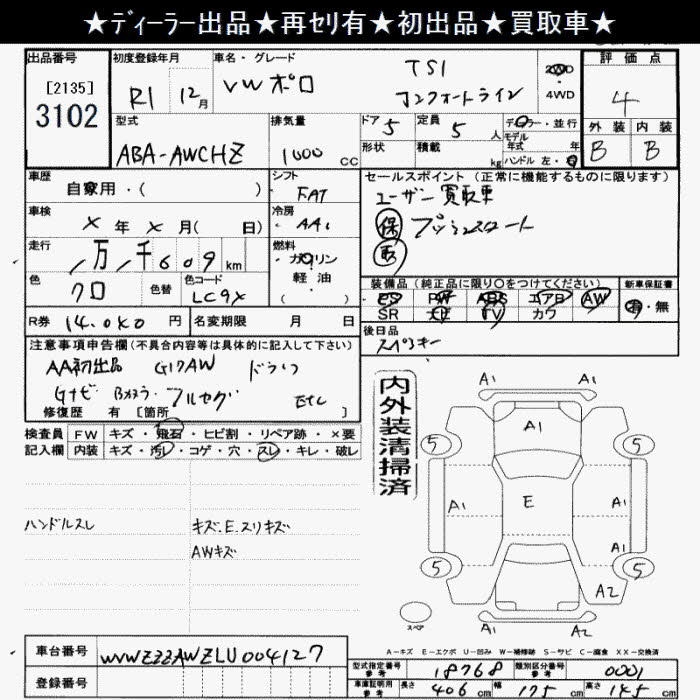 ★ディーラー出品★再セリ有★初出品★買取車★
出品番号
[2135]
3102
初度登録年月
R1 12月
車名・グレード
VW ポロ TSI
コンフォートライン
2WD
・4WD
評価点
4
外装 内装
B B
型式
ABA-AWCHZ
排気量
1000 cc
ドア 5
定員 5 人
形状
積載 kg
ディーラー・並行
モデル年式 年
ハンドル 左・右
車歴
自家用・( )
シフト
FAT
車検
× 年 × 月( 日)
冷房
AAC
走行
1万1千609km
燃料
ガソリン
・軽油
・( )
色
クロ
色替
色コード
LC9X
R券 14.0k0 円
名変期限 月 日
セールスポイント(正常に機能するものに限ります)
ユーザー買取車
保 プッシュスタート
取
装備品(純正品に限り○をつけてください)
新車保証書
PS PW ABS エアB AW
SR ナビ TV カワ
有・無
後日品
スペアキー
注意事項申告欄(不具合内容等は具体的に記入して下さい)
AA初出品 G17AW ドラレコ
Gナビ Bカメラ フルセグ ETC
修復歴 有 [箇所 ]
検査員 FW キズ・飛石・ヒビ割・リペア跡・×要
記入欄 内装 キズ・汚レ・コゲ・穴・スレ・キレ・破レ
ハンドルスレ
キズ.E.スリキズ
AWキズ
内外装清掃済
A1 A1
A1
5 5
A1 E A1
A1
5 5
A2
スペア
A1 A2
A-キズ E-エクボ U-凹み W-補修跡 S-サビ C-腐食 XX-交換済
車台番号 WVWZZZAWZLU004127
登録番号
型式指定番号 参考 18768
類別区分番号 参考 0001
車庫証明用 参考 長さ 406 cm 幅 175 cm 高さ cm